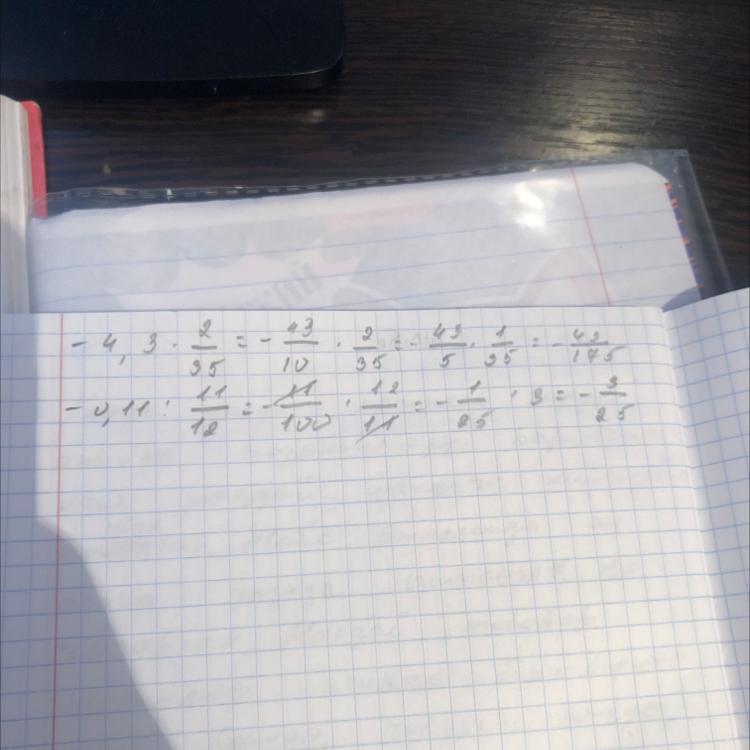 - 4,3 · 2/35 = - 43/10 · 2/35 = - 43/5 · 1/35 = - 43/175
- 0,11 : 11/12 = - 11/100 · 12/11 = - 1/25 · 3 = - 3/25